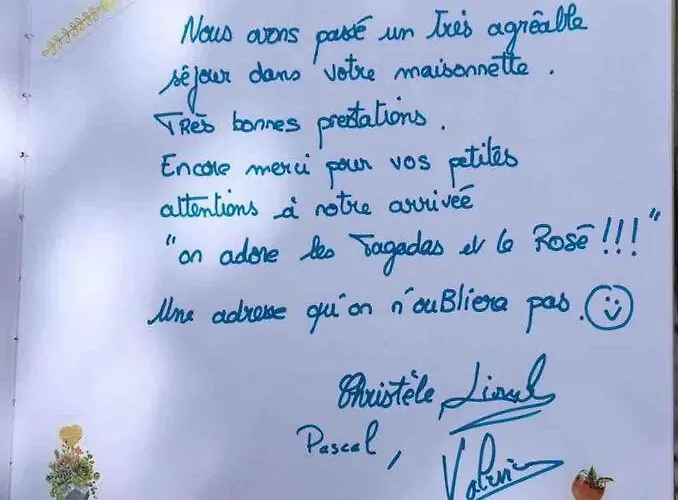 Nous avons passé un très agréable
séjour dans votre maisonnette.
Très bonnes prestations.
Encore merci pour vos petites
attentions à notre arrivée
"on adore les Tagadas et le Rosé !!!"
Une adresse qu'on n'oubliera pas. ☺
Christèle Lionel
Pascal, Valérie